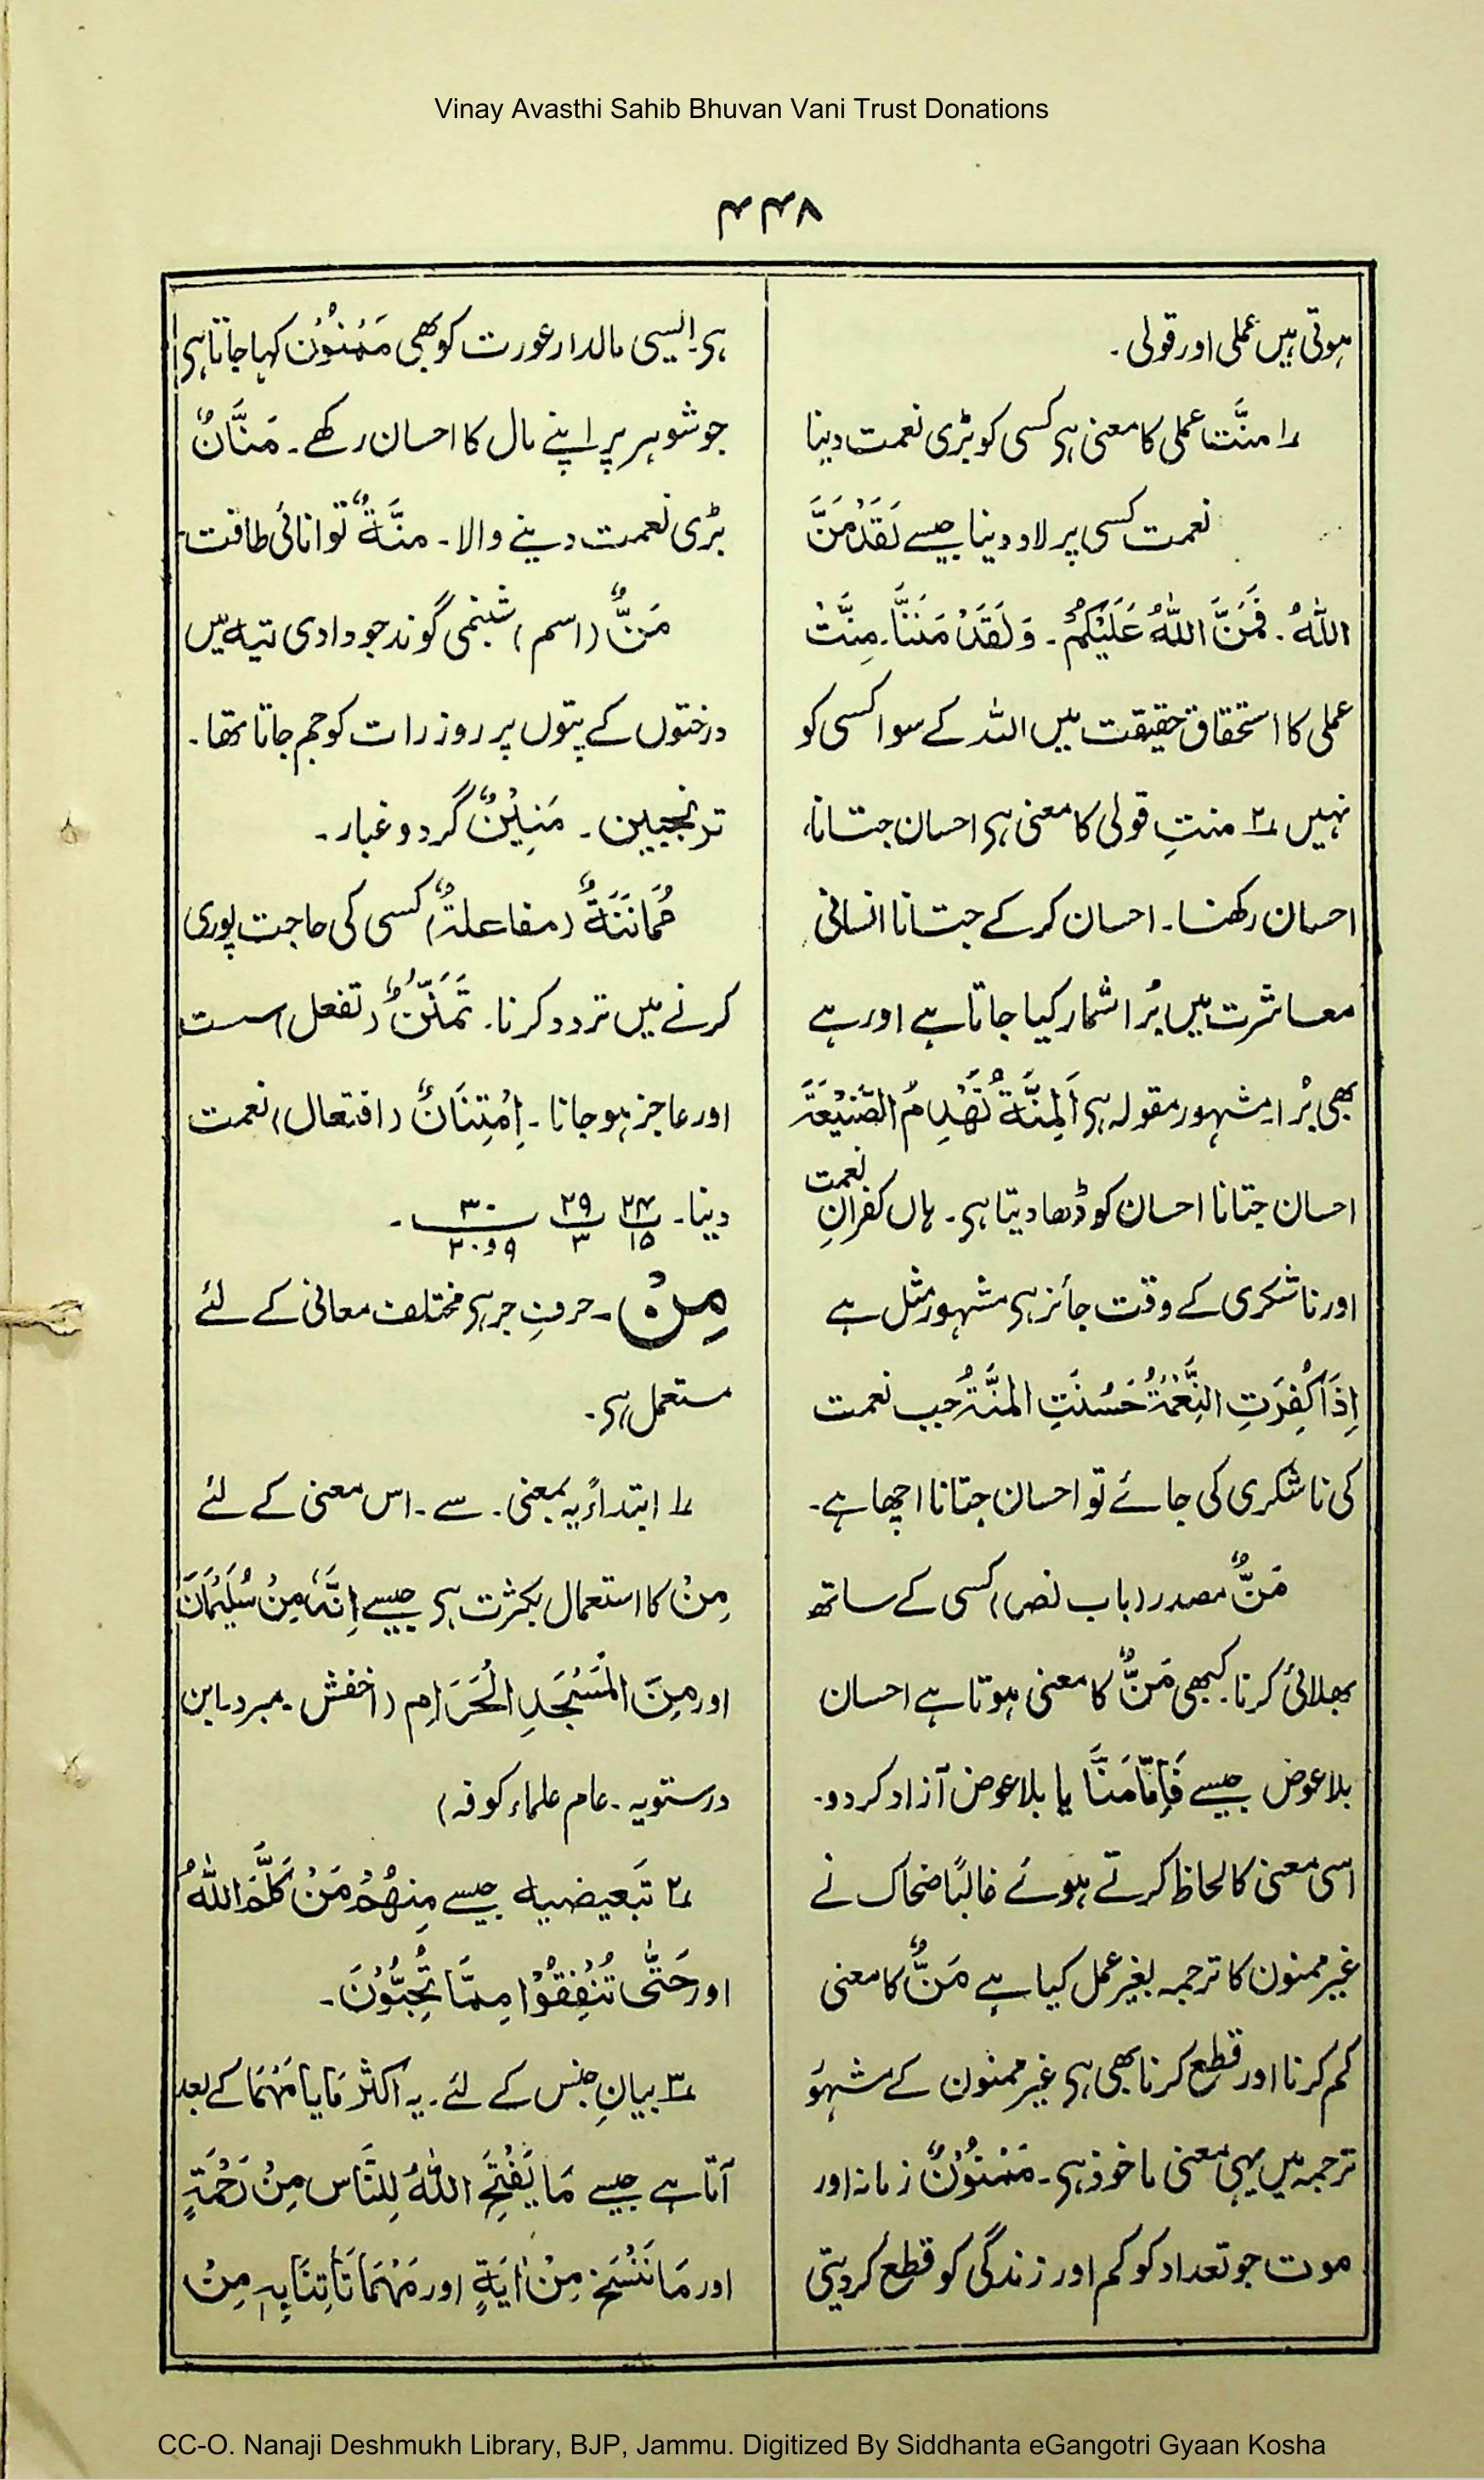 Vinay Avasthi Sahib Bhuvan Vani Trust Donations
۴۴۸
ہوتی ہیں عملی اور قولی۔
۱؎ منَّت عملی کا معنی ہی کسی کو بڑی نعمت دینا
نعمت کسی پر لاد دینا جیسے لَقَدْ مَنَّ
اللّٰہُ۔ فَمَنَّ اللّٰہُ عَلَیْکُمْ۔ وَلَقَدْ مَنَنَّا۔ مِنَّتْ
عملی کا استحقاق حقیقت میں اللہ کے سوا کسی کو
نہیں ۲؎ منتِ قولی کا معنی ہی احسان جتانا،
احسان رکھنا۔ احسان کرکے جتانا انسانی
معاشرت میں بُرا شمار کیا جاتا ہے اور ہے
بھی بُرا۔ مشہور مقولہ ہی اَلمِنَّۃُ تَھْدِمُ الصَّنِیْعَۃَ
احسان جتانا احسان کو ڈھا دیتا ہی۔ ہاں کفرانِ نعمت
اور ناشکری کے وقت جائز ہی مشہور مثل ہے
اِذَا کُفِرَتِ النِّعْمَۃُ حَسُنَتِ المِنَّۃُ جب نعمت
کی ناشکری کی جائے تو احسان جتانا اچھا ہے۔
مَنٌّ مصدر (باب نصر) کسی کے ساتھ
بھلائی کرنا۔ کبھی مَنٌّ کا معنی ہوتا ہے احسان
بلاعوض جیسے فَاِمَّا مَنَّا یا بلاعوض آزاد کردو۔
اسی معنی کا لحاظ کرتے ہوئے غالبًا ضحاک نے
غیر ممنون کا ترجمہ بغیر عمل کیا ہے مَنٌّ کا معنی
کم کرنا اور قطع کرنا بھی ہی غیر ممنون کے مشہور
ترجمہ میں یہی معنی ماخوذ ہی۔ مَمْنُوْنٌ زمانہ اور
موت جو تعداد کو کم اور زندگی کو قطع کردیتی
ہی۔ ایسی مالدار عورت کو بھی مَمْنُوْن کہا جاتا ہی
جو شوہر پر اپنے مال کا احسان رکھے۔ مَنَّانٌ
بڑی نعمت دینے والا۔ منَّۃٌ توانائی طاقت۔
مَنٌّ (اسم) شبنمی گوند جو وادی تیہ میں
درختوں کے پتوں پر روز رات کو جم جاتا تھا۔
ترنجبین۔ مَنِیْنٌ گرد و غبار۔
مُمَانَنَۃٌ (مفاعلۃٌ) کسی کی حاجت پوری
کرنے میں تردد کرنا۔ تَمَنُّنٌ (تفعل) سست
اور عاجز ہوجانا۔ اِمْتِنَانٌ (افتعال) نعمت
دینا۔ ۲۴/۱۵ ۲۹/۳ ۳۰/۹و۲۰۔
مِنْ۔ حرفِ جر ہی مختلف معانی کے لئے
مستعمل ہی۔
۱؎ ابتدائیہ بمعنی۔ سے۔ اس معنی کے لئے
مِنْ کا استعمال بکثرت ہی جیسے اِنَّہٗ مِنْ سُلَیْمَانَ
اور مِنَ الْمَسْجِدِ الْحَرَامِ (اخفش۔ مبرد۔ ابن
درستویہ۔ عام علماء کوفہ)
۲؎ تَبعیضیہ جیسے مِنھُمْ مَنْ کَلَّمَ اللّٰہُ
اور حَتّٰی تُنْفِقُوْا مِمَّا تُحِبُّوْنَ۔
۳؎ بیانِ جنس کے لئے۔ یہ اکثر مَا یا مَھْمَا کے بعد
آتا ہے جیسے مَا یَفْتَحِ اللّٰہُ لِلنَّاسِ مِنْ رَحْمَۃٍ
اور مَا نَنْسَخْ مِنْ اٰیَۃٍ اور مَھْمَا تَاتِنَا بِہٖ مِنْ
CC-O. Nanaji Deshmukh Library, BJP, Jammu. Digitized By Siddhanta eGangotri Gyaan Kosha